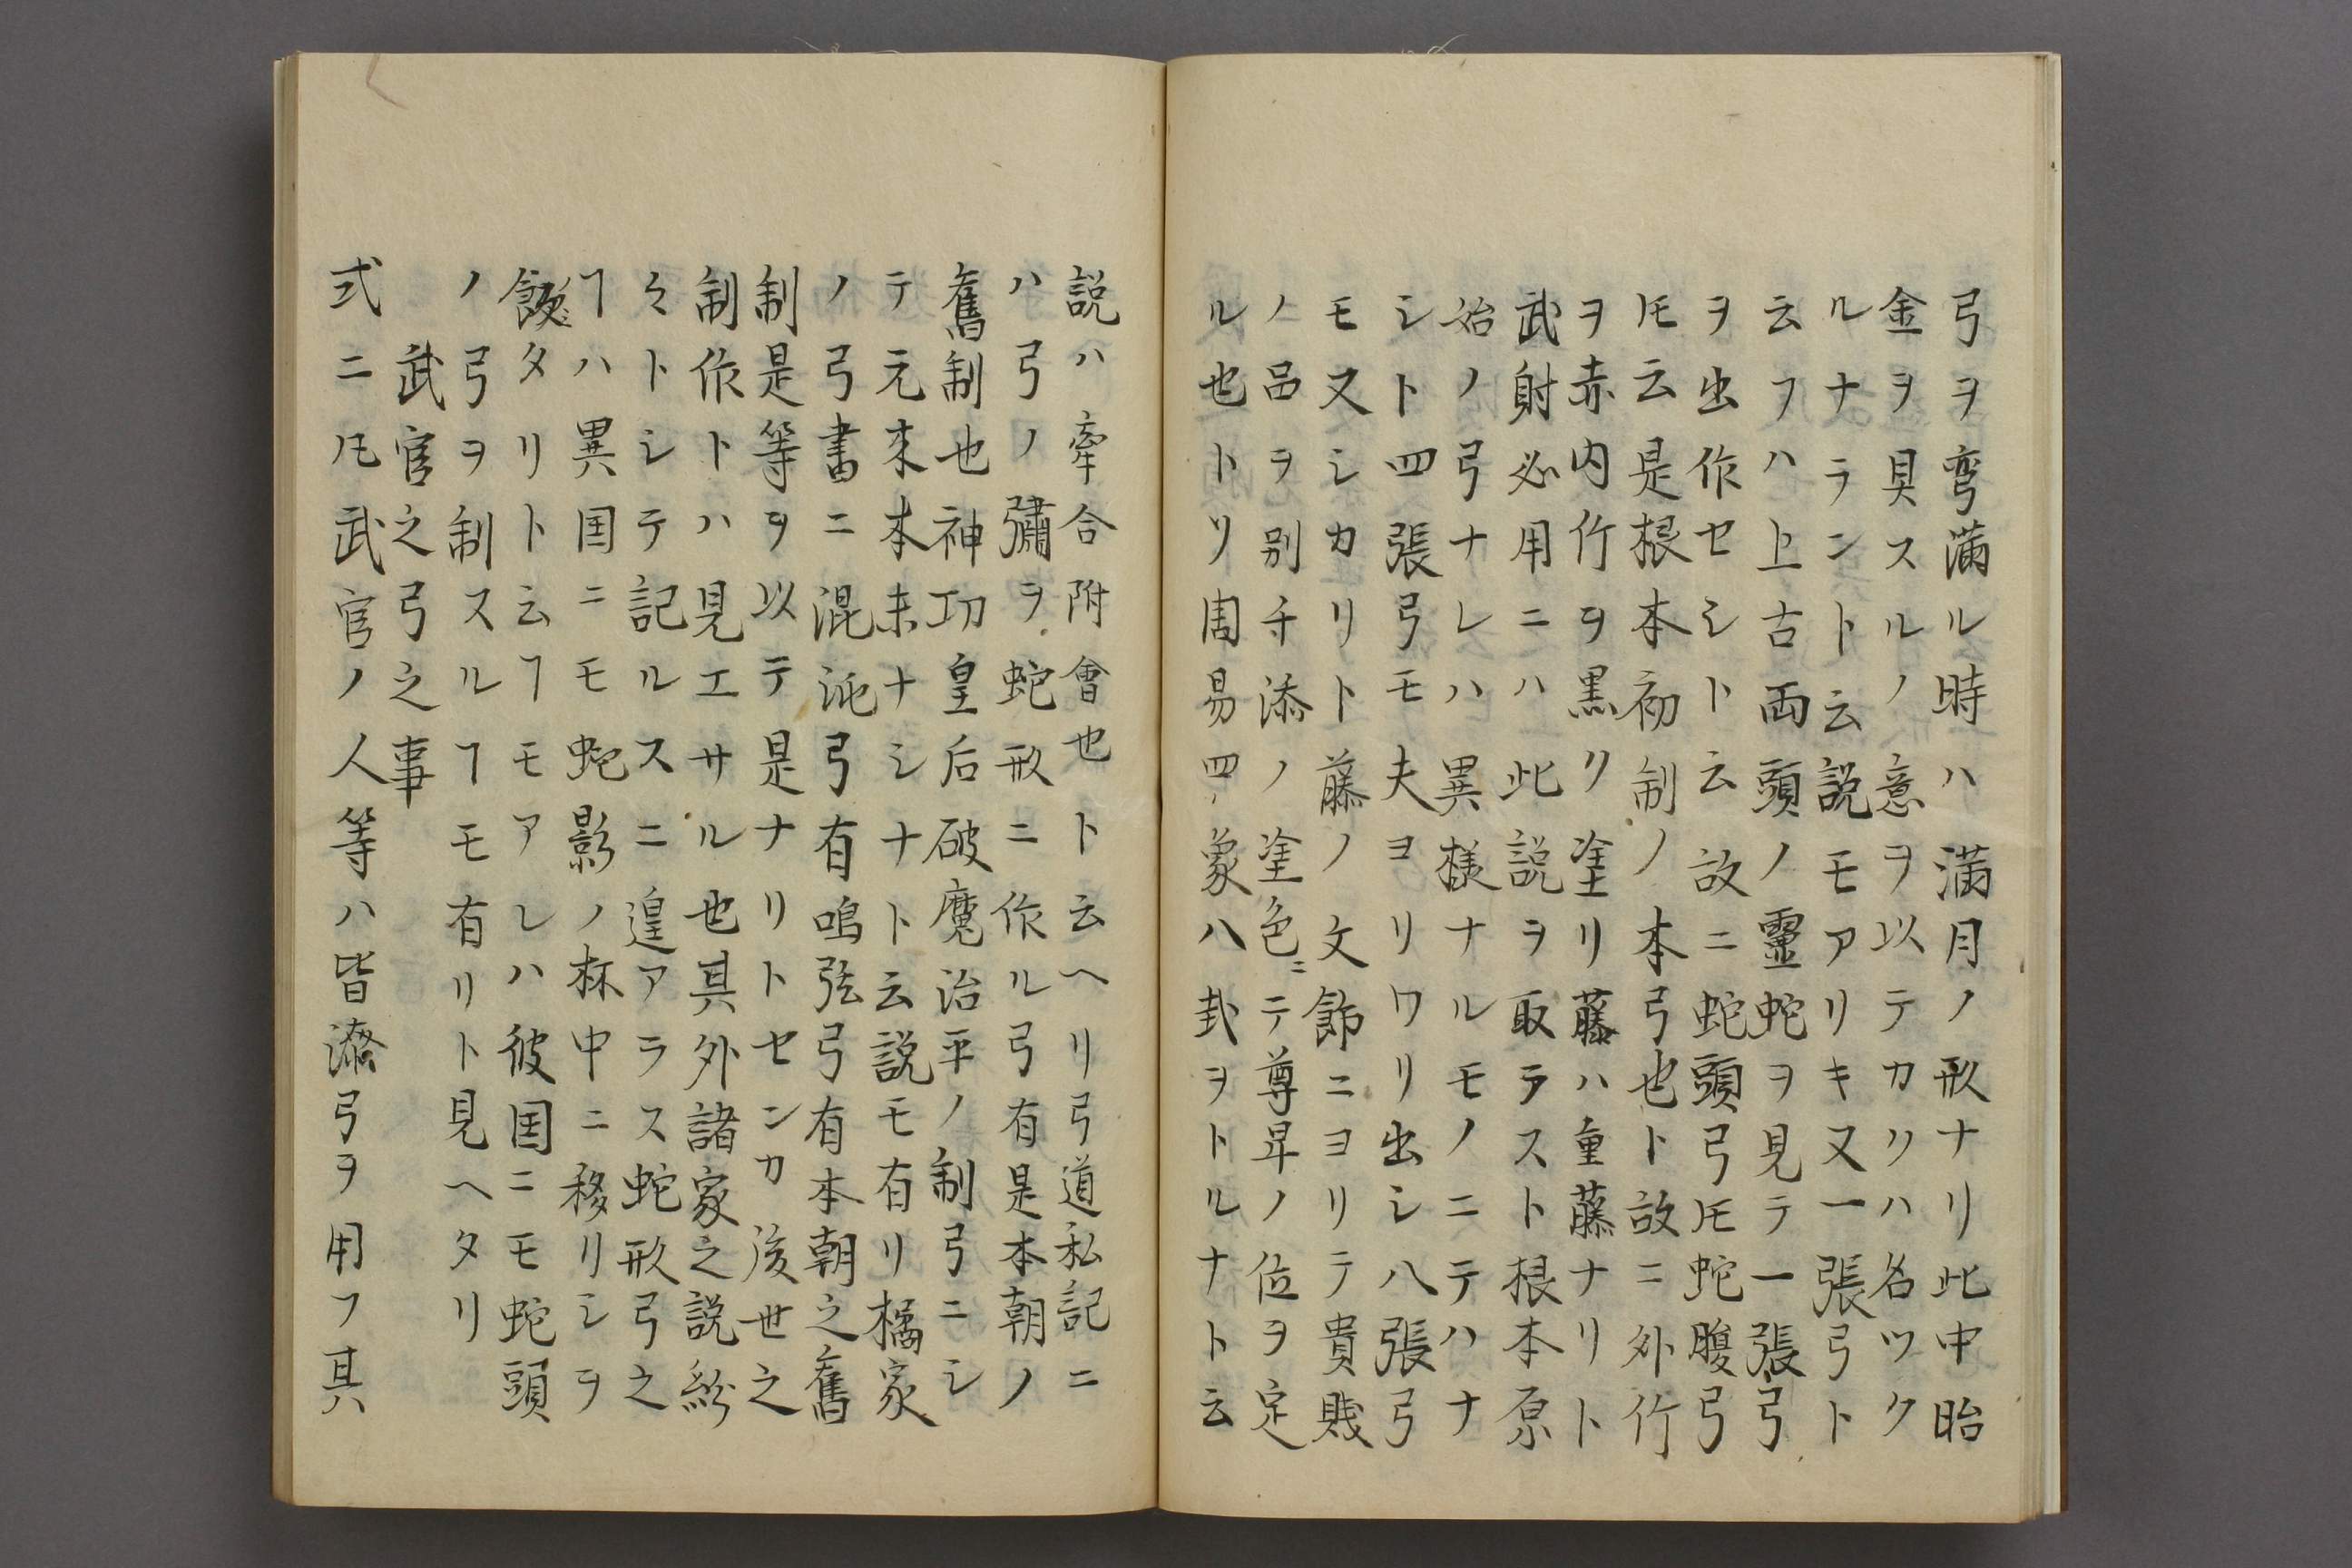 弓ヲ弯満ル時ハ満月ノ形ナリ此中胎
金ヲ具スルノ意ヲ以テカリハ名ツク
ルナラント云説モアリキ又一張弓ト
云フハ上古両頭ノ靈蛇ヲ見テ一張弓
ヲ出作セシト云故ニ蛇頭弓𪜈蛇腹弓
𪜈云是根本初制ノ本弓也ト故ニ外竹
ヲ赤内竹ヲ黒リ塗リ藤ハ重藤ナリト
武射必用ニハ此説ヲ取ラスト根本原
始ノ弓ナレハ異様ナルモノニテハナ
シト四張弓モ夫ヨリワリ出シ八張弓
モ又シカリト藤ノ文飾ニヨリテ貴賎
ノ品ヲ別千添ノ塗色ニテ尊卑ノ位ヲ定
ル也トリ周易四象八卦ヲトルナト云
説ハ牽合附會也ト云ヘリ弓道私記ニ
ハ弓ノ彇ヲ蛇形ニ作ル弓有是本朝ノ
舊制也神功皇后破魔治平ノ制弓ニシ
テ元来本末ナシナト云説モ有リ橘家
ノ弓書ニ混沌弓有鳴弦弓有本朝之舊
制是等ヲ以テ是ナリトセンカ後世之
制作トハ見エサル也其外諸家之説紛
々トシテ記ルスニ遑アラス蛇形弓之
ヿハ異国ニモ蛇影ノ杯中ニ移リシヲ
タリト云ヿモアレハ彼国ニモ蛇頭
ノ弓ヲ制スルヿモ有リト見ヘタリ
武官之弓之事
式ニ𪜈武官ノ人等ハ皆漆弓ヲ用フ其